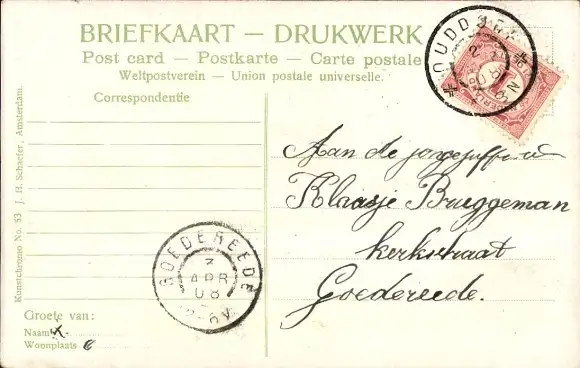 BRIEFKAART — DRUKWERK
Post card — Postkarte — Carte postale
Weltpostverein — Union postale universelle.
Correspondentie
Kunstchromo No. 53 J. H. Schaefer, Amsterdam.
OUDDORP
Aan de jongejuffrouw
Klaasje Bruggeman
kerkstraat
Goedereede.
GOEDEREEDE
3
APR
08
Groete van:
Naam
Woonplaats